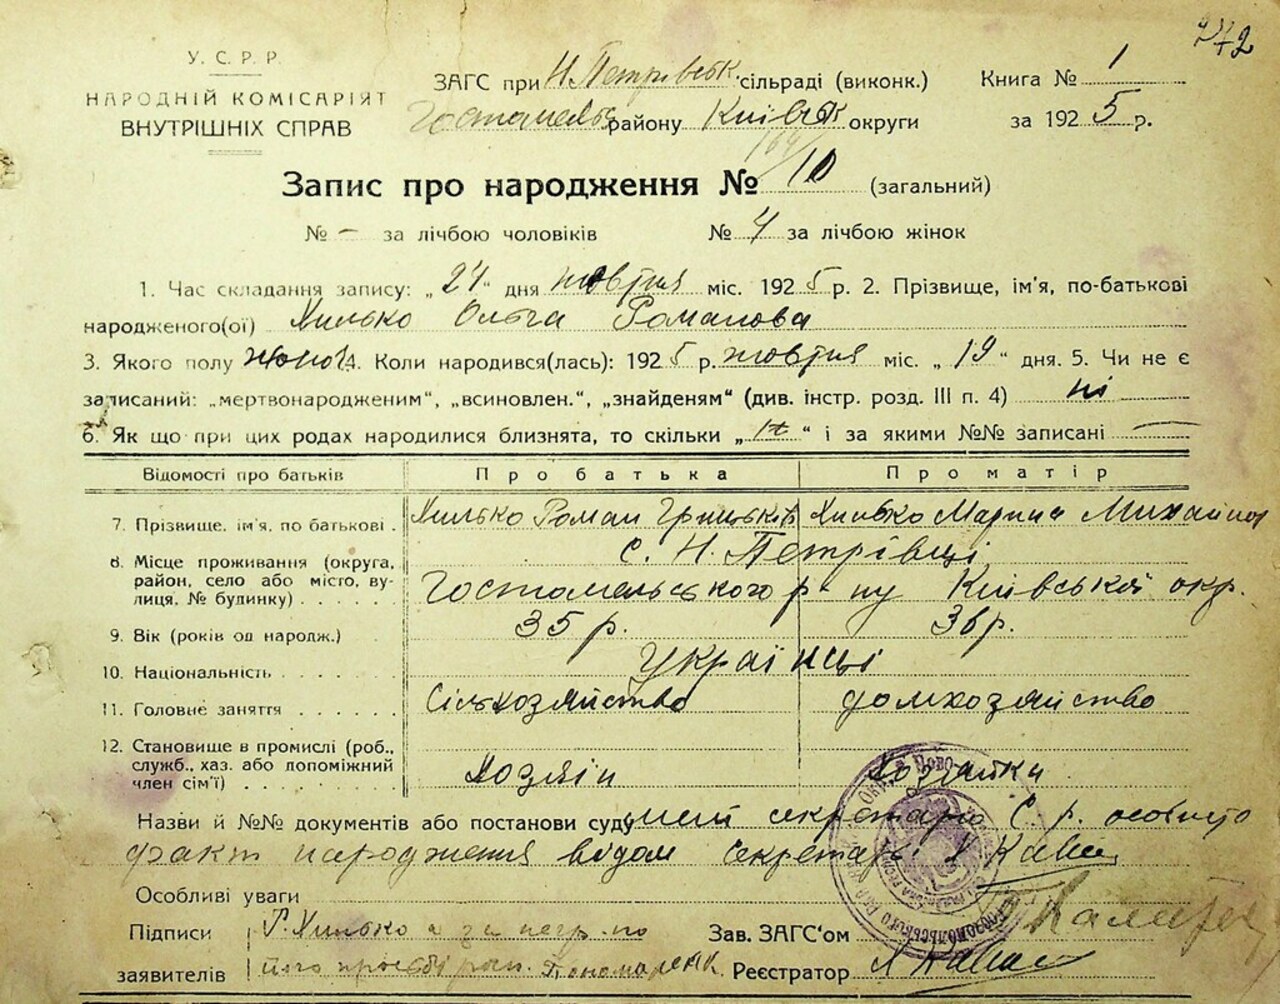 742
У. С. Р. Р.
НАРОДНІЙ КОМІСАРІЯТ
ВНУТРІШНІХ СПРАВ
ЗАГС при Н. Петрівськ. сільраді (виконк.) Книга № 1
Гостомельс району Київськ округи за 1925 р.
Запис про народження № 10 (загальний)
№ – за лічбою чоловіків № 4 за лічбою жінок
1. Час складання запису: „24" дня жовтня міс. 1925 р. 2. Прізвище, ім'я, по-батькові
народженого(ої) Хилько Ольга Романова
3. Якого полу жіноч 4. Коли народився(лась): 1925 р. жовтня міс. „19" дня. 5. Чи не є
записаний: „мертвонародженим", „всиновлен.", „знайденям" (див. інстр. розд. III п. 4) ні
6. Як що при цих родах народилися близнята, то скільки „ " і за якими №№ записані —
Відомості про батьків Про батька Про матір
7. Прізвище, ім'я, по батькові Хилько Роман Грицьків Хилько Марина Михайлов
8. Місце проживання (округа, район, село або місто, вулиця, № будинку) с. Н. Петрівці
Гостомельського р-ну Київської окр.
9. Вік (років од народж.) 35 р. 36 р.
10. Національність українці
11. Головне заняття Сільхозяйство домхозяйство
12. Становище в промислі (роб., служб., хаз. або допоміжний член сім'ї) Хозяін Хозяйка
Назви й №№ документів або постанови суду мені секретарю С. р. особисто
факт народження відом секретарь
Особливі уваги
Підписи Р. Хилько а за негр. по Зав. ЗАГС'ом
заявителів його просьбі рос. Пономаренк. Реєстратор